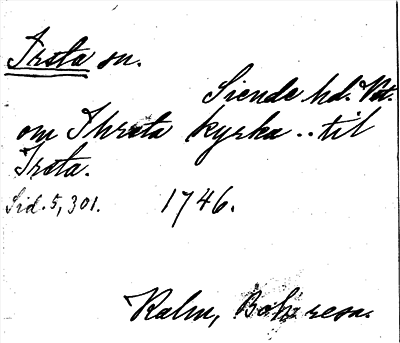 Irsta sn.
Siende hd. Vstm.
om Thrsta kyrka .. til
Irsta.
Sid. 5, 301. 1746.
Kalm, Bohusresa.